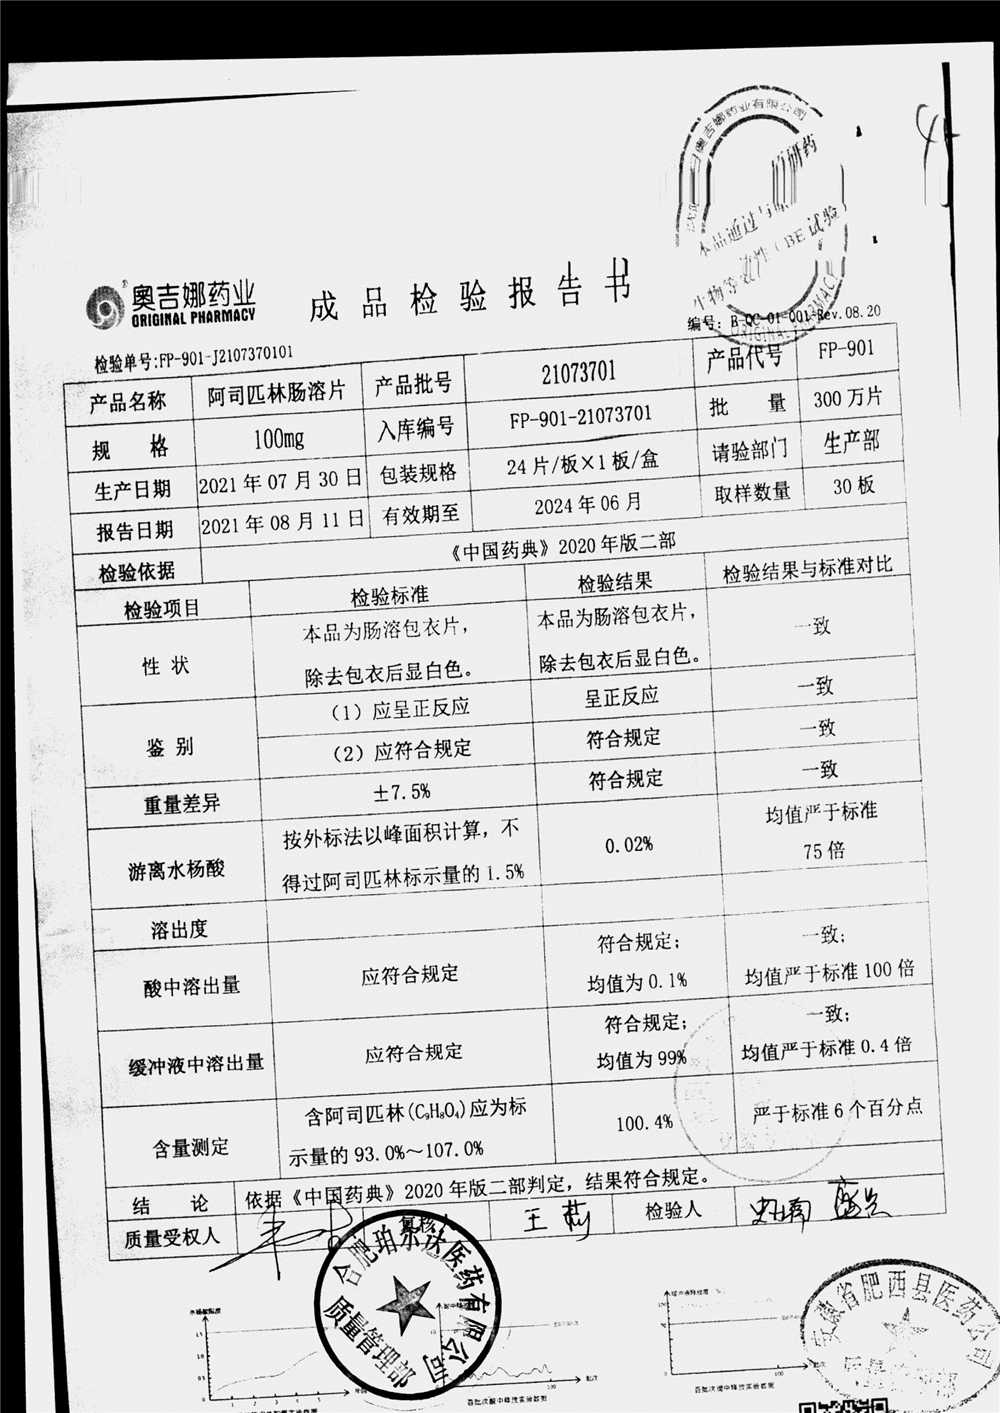 奥吉娜药业
ORIGINAL PHARMACY
成品检验报告书
本品通过与原研药
生物等效性(BE试验
编号: R-QC-01-001-Rev.08.20
检验单号:FP-901-J2107370101
产品名称 阿司匹林肠溶片 产品批号 21073701 产品代号 FP-901
规 格 100mg 入库编号 FP-901-21073701 批 量 300 万片
生产日期 2021 年 07 月 30 日 包装规格 24 片/板×1 板/盒 请验部门 生产部
报告日期 2021 年 08 月 11 日 有效期至 2024 年 06 月 取样数量 30 板
检验依据 《中国药典》2020 年版二部
检验项目 检验标准 检验结果 检验结果与标准对比
性 状 本品为肠溶包衣片，
除去包衣后显白色。 本品为肠溶包衣片，
除去包衣后显白色。 一致
鉴 别 （1）应呈正反应 呈正反应 一致
（2）应符合规定 符合规定 一致
重量差异 ±7.5% 符合规定 一致
游离水杨酸 按外标法以峰面积计算，不
得过阿司匹林标示量的 1.5% 0.02% 均值严于标准
75 倍
溶出度
酸中溶出量 应符合规定 符合规定；
均值为 0.1% 一致；
均值严于标准 100 倍
缓冲液中溶出量 应符合规定 符合规定；
均值为 99% 一致；
均值严于标准 0.4 倍
含量测定 含阿司匹林(C₉H₈O₄)应为标
示量的 93.0%～107.0% 100.4% 严于标准 6 个百分点
结 论 依据《中国药典》2020 年版二部判定，结果符合规定。
质量受权人 复核人 王莉 检验人
合肥珀尔达医药有限公司
质量管理部
安徽省肥西县医药公司